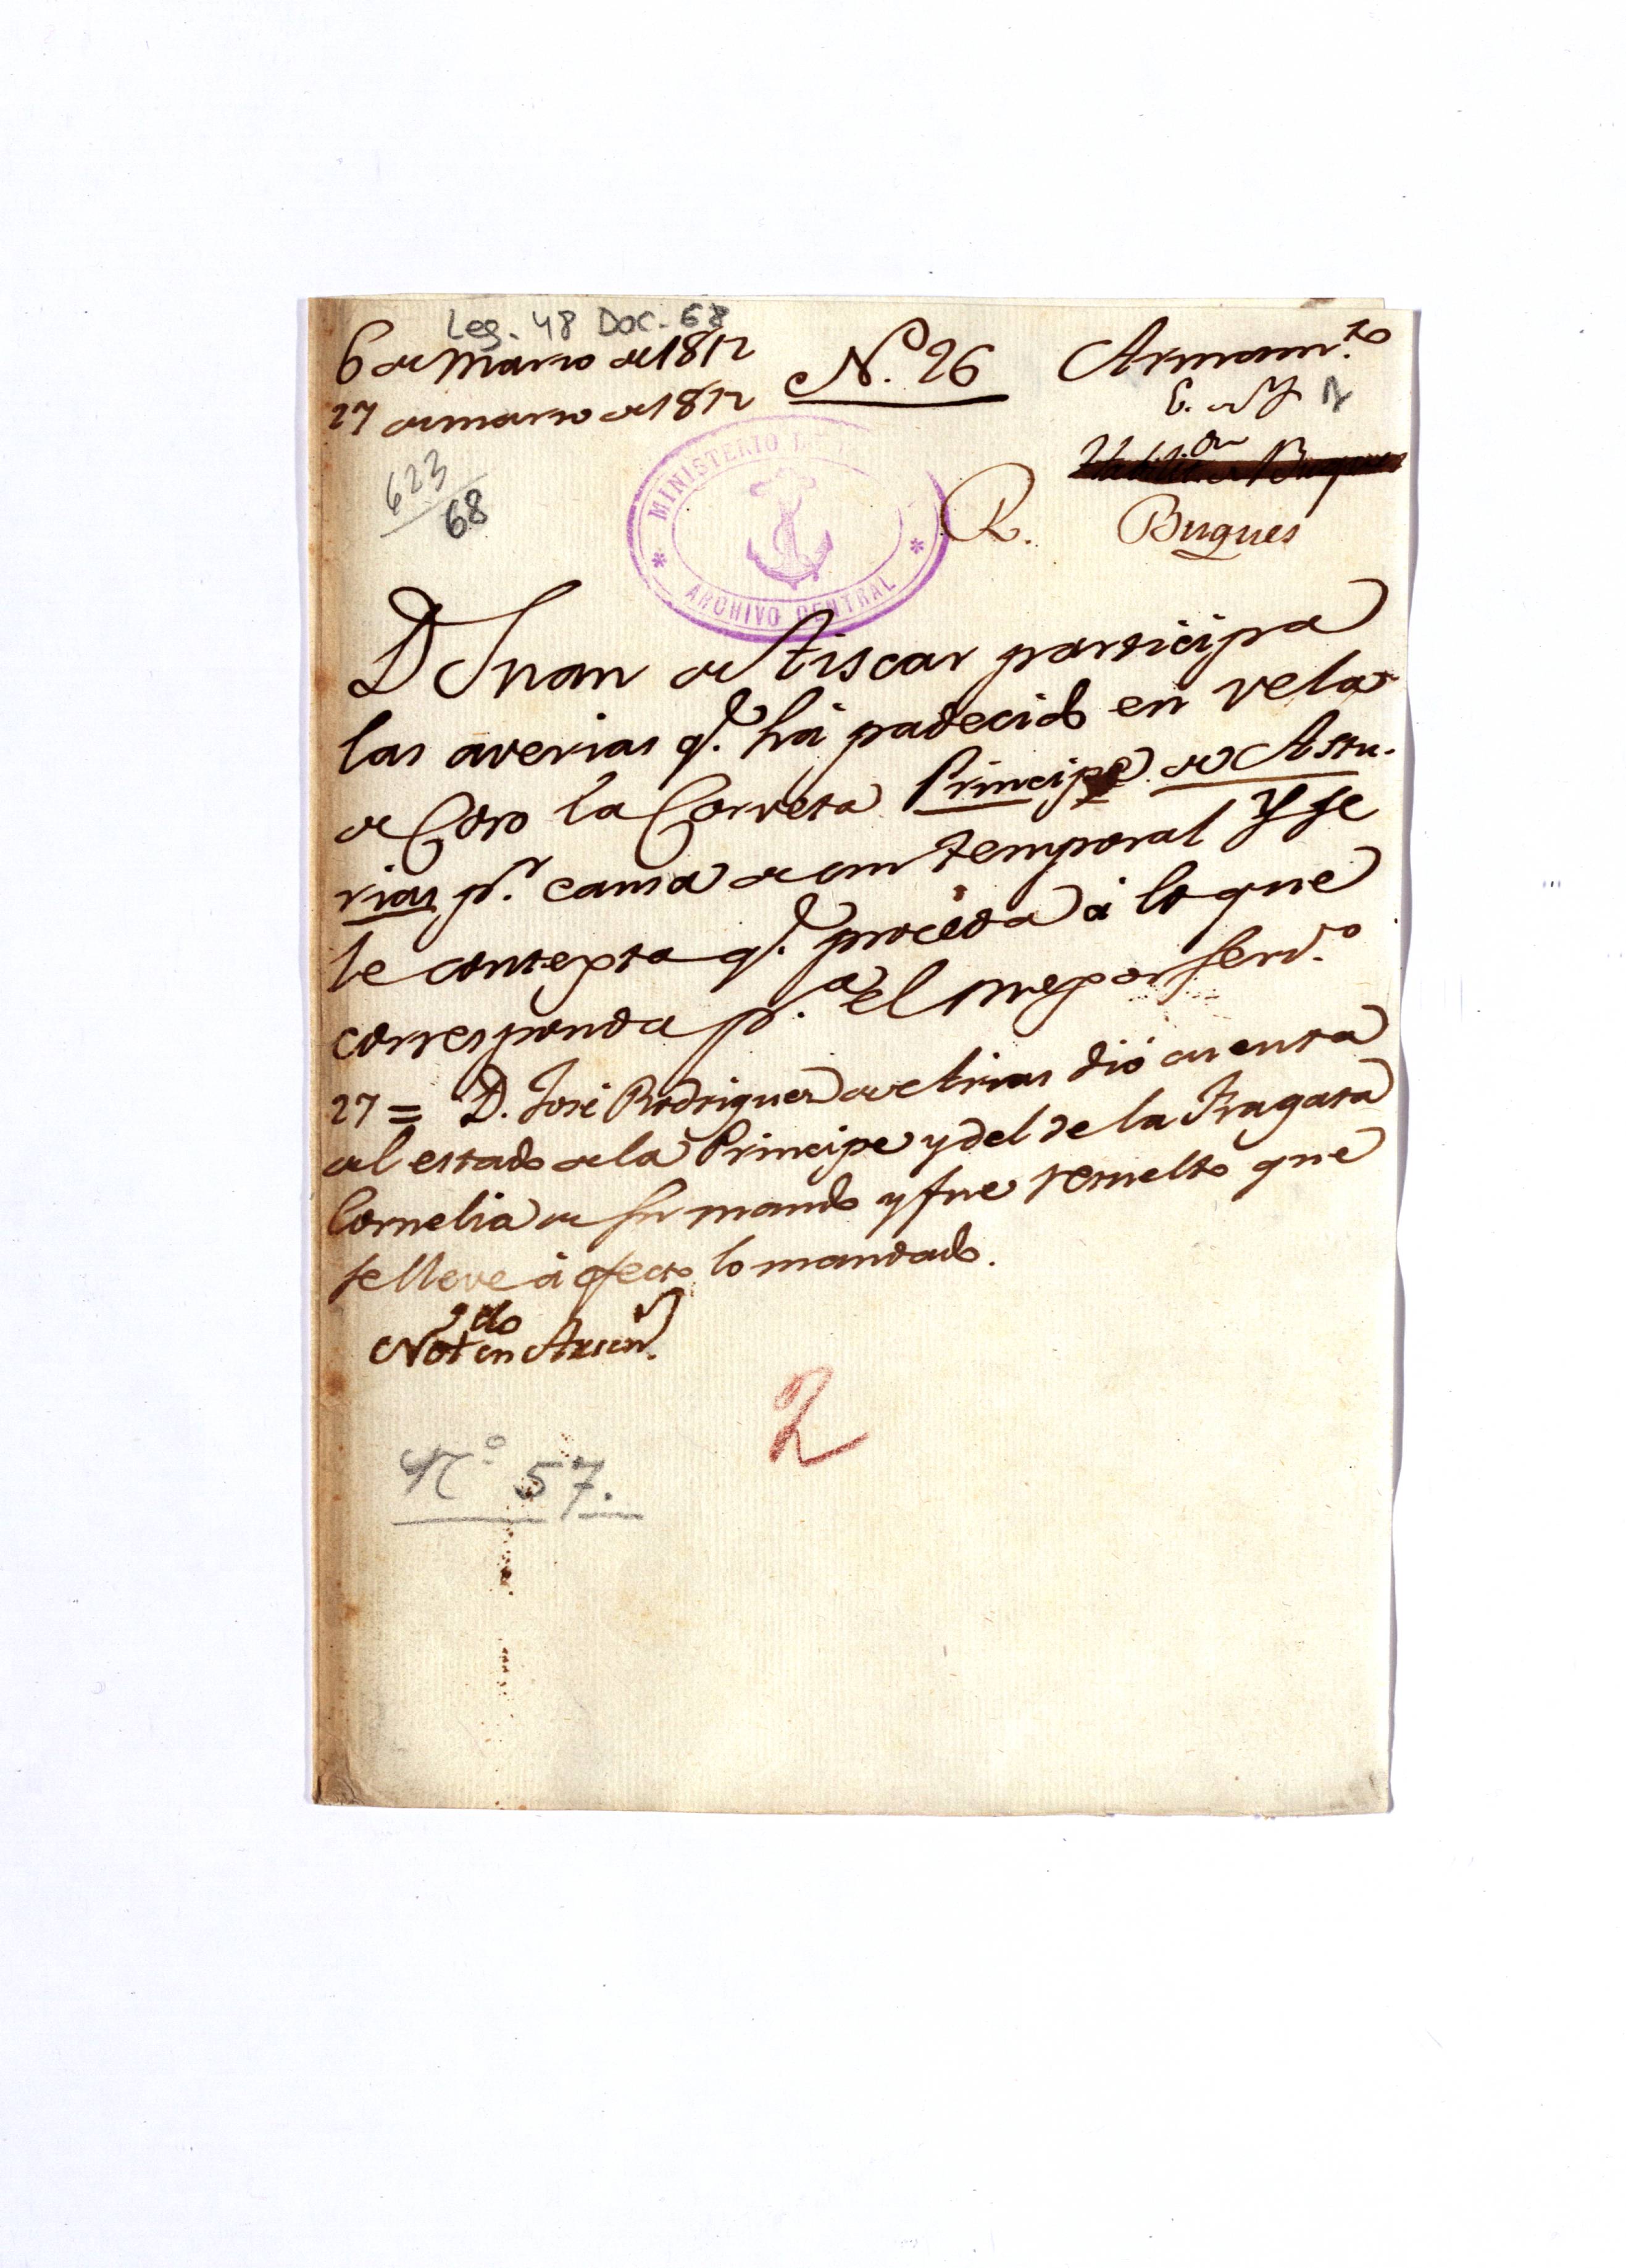 Leg. 48 Doc. 68
6 de Marzo de 1812
27 de marzo de 1812
N.º 26
Armam.to
E. de
623
68
MINISTERIO
ARCHIVO CENTRAL
R.
Buques
D Juan de Tiscar participa
las averias q.e há padecido en vela
de Coro la Corveta Principe de Astu-
rias p.r causa de un temporal Y se
le contexta q.e proceda á lo que
corresponda p.a el mejor serv.o
27 = D. José Rodriguez de Arias dió cuenta
del estado de la Principe y del de la Fragata
Cornelia de su mando y fue resuelto que
se lleve á efecto lo mandado.
Not en
2
Nº 57.